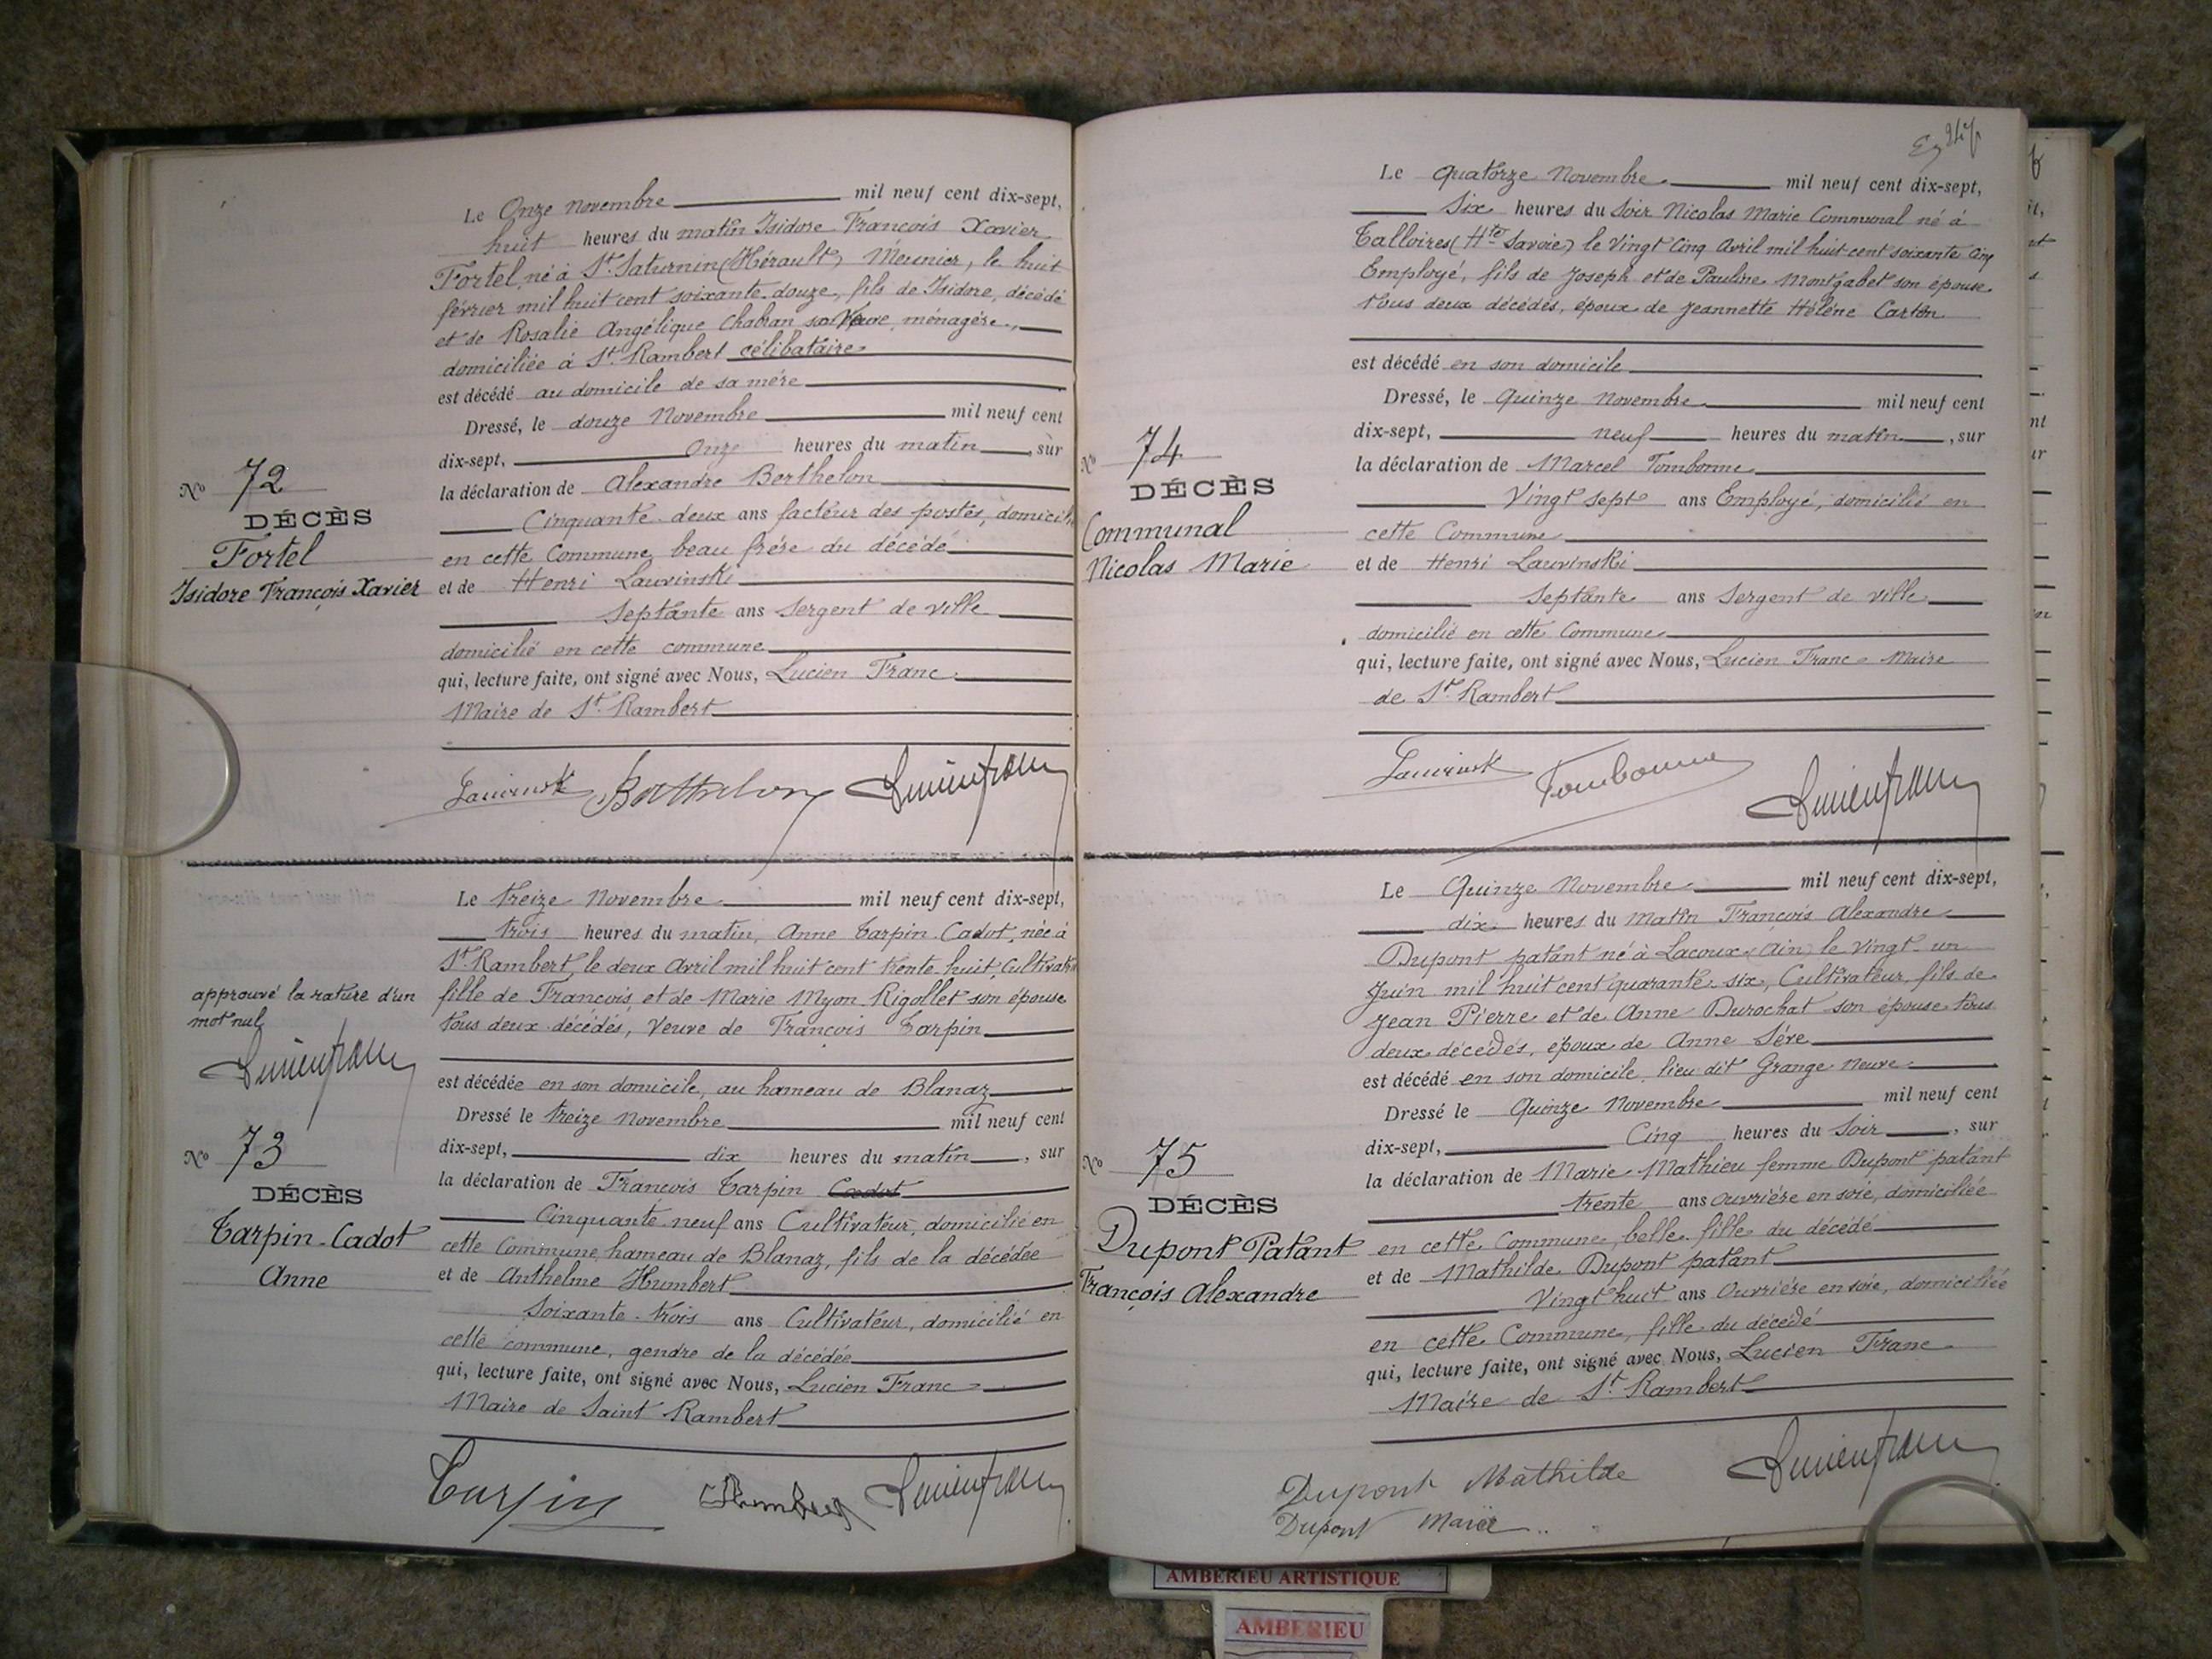 Le Onze Novembre mil neuf cent dix-sept,
huit heures du matin Isidore François Xavier
Fortel, né à St. Saturnin (Hérault) Meunier, le huit
février mil huit cent soixante-douze, fils de Isidore, décédé
et de Rosalie Angélique Chaban sa Veuve, ménagère,
domiciliée à St. Rambert célibataire
est décédé au domicile de sa mère
Dressé, le douze Novembre mil neuf cent
dix-sept, Onze heures du matin, sur
la déclaration de Alexandre Berthelon
Cinquante-deux ans facteur des postes, domicilié
en cette Commune, beau frère du décédé
et de Henri Lauvinski
Septante ans Sergent de ville
domicilié en cette commune
qui, lecture faite, ont signé avec Nous, Lucien Franc
Maire de St. Rambert
No 72
DÉCÈS
Fortel
Isidore François Xavier
Lauvinsk Berthelon Lucien Franc
Le treize Novembre mil neuf cent dix-sept,
trois heures du matin, Anne Tarpin-Cadot, née à
St. Rambert, le deux Avril mil huit cent trente-huit, Cultivatrice
fille de François, et de Marie Myon-Rigollet son épouse
tous deux décédés, Veuve de François Tarpin
est décédée en son domicile, au hameau de Blanaz
Dressé le treize Novembre mil neuf cent
dix-sept, dix heures du matin, sur
la déclaration de François Tarpin Cadot
Cinquante-neuf ans Cultivateur, domicilié en
cette Commune, hameau de Blanaz, fils de la décédée
et de Anthelme Humbert
Soixante-trois ans Cultivateur, domicilié en
cette commune, gendre de la décédée
qui, lecture faite, ont signé avec Nous, Lucien Franc
Maire de Saint Rambert
approuvé la rature d'un
mot nul
Lucien Franc
No 73
DÉCÈS
Tarpin-Cadot
Anne
Tarpin Humbert Lucien Franc
Le quatorze Novembre mil neuf cent dix-sept,
Six heures du Soir Nicolas Marie Communal né à
Talloires (Hte Savoie) le Vingt Cinq Avril mil huit cent soixante Cinq
Employé, fils de Joseph et de Pauline Montgabet son épouse
tous deux décédés, époux de Jeannette Hélène Carton
est décédé en son domicile
Dressé, le Quinze Novembre mil neuf cent
dix-sept, neuf heures du matin, sur
la déclaration de Marcel Tombonne
Vingt sept ans Employé, domicilié en
cette Commune
et de Henri Lauvinski
Septante ans Sergent de ville
domicilié en cette Commune
qui, lecture faite, ont signé avec Nous, Lucien Franc Maire
de St. Rambert
No 74
DÉCÈS
Communal
Nicolas Marie
Lauvinsk Tombonne Lucien Franc
Le Quinze Novembre mil neuf cent dix-sept,
dix heures du Matin François Alexandre
Dupont patant né à Lacoux (Ain) le Vingt-un
Juin mil huit cent quarante-six, Cultivateur, fils de
Jean Pierre et de Anne Durochat son épouse tous
deux décédés, époux de Anne Sève
est décédé en son domicile, lieu dit Grange Neuve
Dressé le Quinze Novembre mil neuf cent
dix-sept, Cinq heures du Soir, sur
la déclaration de Marie Mathieu femme Dupont patant
trente ans Ouvrière en soie, domiciliée
en cette Commune, belle-fille du décédé
et de Mathilde Dupont patant
Vingt huit ans Ouvrière en soie, domiciliée
en cette Commune, fille du décédé
qui, lecture faite, ont signé avec Nous, Lucien Franc
Maire de St. Rambert
No 75
DÉCÈS
Dupont Patant
François Alexandre
Dupont Mathilde Lucien Franc
Dupont Marie
AMBERIEU ARTISTIQUE
AMBERIEU